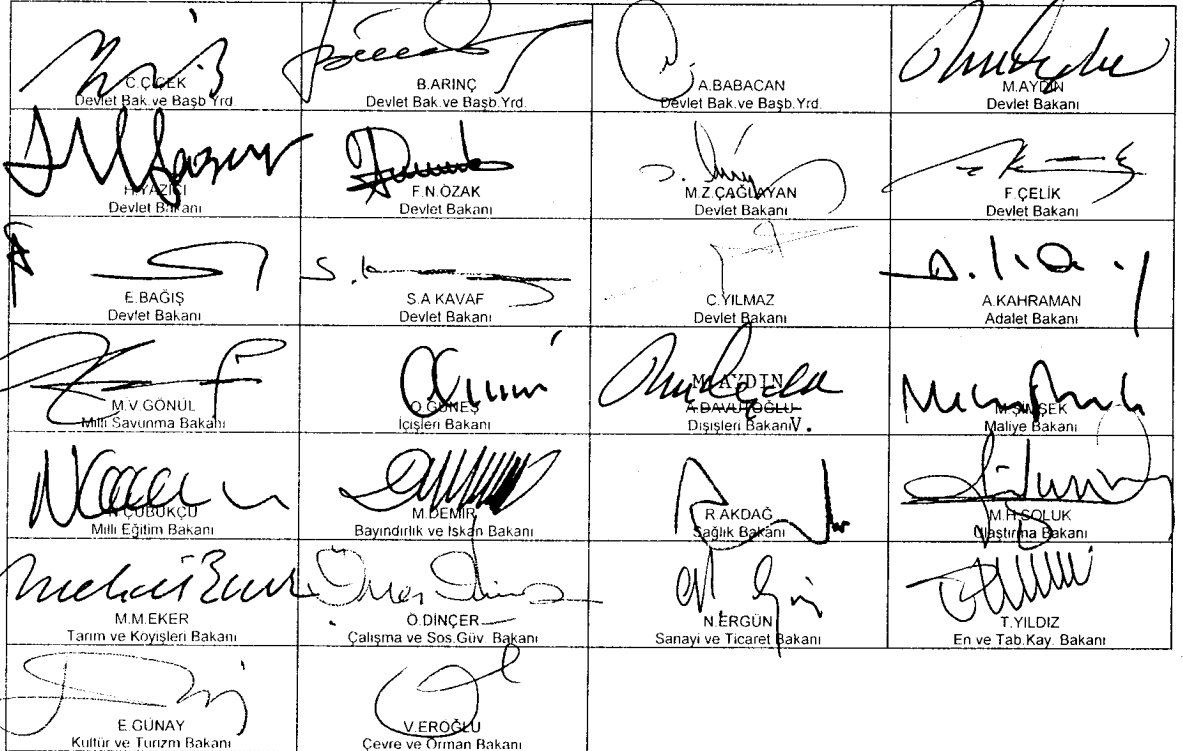 C.ÇİÇEK
Devlet Bak.ve Başb.Yrd.
B.ARINÇ
Devlet Bak.ve Başb.Yrd.
A.BABACAN
Devlet Bak.ve Başb.Yrd.
M.AYDIN
Devlet Bakanı
H.YAZICI
Devlet Bakanı
F.N.ÖZAK
Devlet Bakanı
M.Z.ÇAĞLAYAN
Devlet Bakanı
F.ÇELİK
Devlet Bakanı
E.BAĞIŞ
Devlet Bakanı
S.A.KAVAF
Devlet Bakanı
C.YILMAZ
Devlet Bakanı
A.KAHRAMAN
Adalet Bakanı
M.V.GÖNÜL
Milli Savunma Bakanı
O.GÜNEŞ
İçişleri Bakanı
M.AYDIN
A.DAVUTOĞLU
Dışişleri Bakanı V.
M.ŞİMŞEK
Maliye Bakanı
N.ÇUBUKÇU
Milli Eğitim Bakanı
M.DEMİR
Bayındırlık ve İskan Bakanı
R.AKDAĞ
Sağlık Bakanı
M.H.SOLUK
Ulaştırma Bakanı
M.M.EKER
Tarım ve Köyişleri Bakanı
Ö.DİNÇER
Çalışma ve Sos.Güv. Bakanı
N.ERGÜN
Sanayi ve Ticaret Bakanı
T.YILDIZ
En ve Tab.Kay. Bakanı
E.GÜNAY
Kültür ve Turizm Bakanı
V.EROĞLU
Çevre ve Orman Bakanı